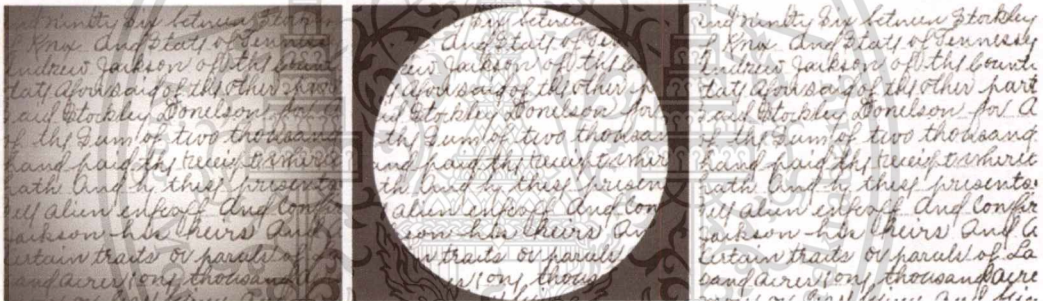 ninty six between
Knox And State of Tennessy
Andrew Jackson of the
State aforesaid of the other
said Stockley Donelson for
of the Sum of two thousand
hand paid the
hath And by these presents
self alien enfeoff And
Jackson his heirs And
certain traits or parcels of
sand acres (one thousand
six between
And State of
Jackson of the
aforesaid of the other
Stockley Donelson for
the Sum of two
and paid the receipt
And by these presen
alien enfeoff And Con
son his heirs An
traits or parcels
(one thous
and ninty six between Stockley
of Knox And State of Tennessy
Andrew Jackson of the Count
tate aforesaid of the other part
said Stockley Donelson for a
of the Sum of two thousand
hand paid the receipt where
hath And by these presents
self alien enfeoff And Confir
Jackson his heirs And a
certain traits or parcels of La
sand acres (one thousand acre